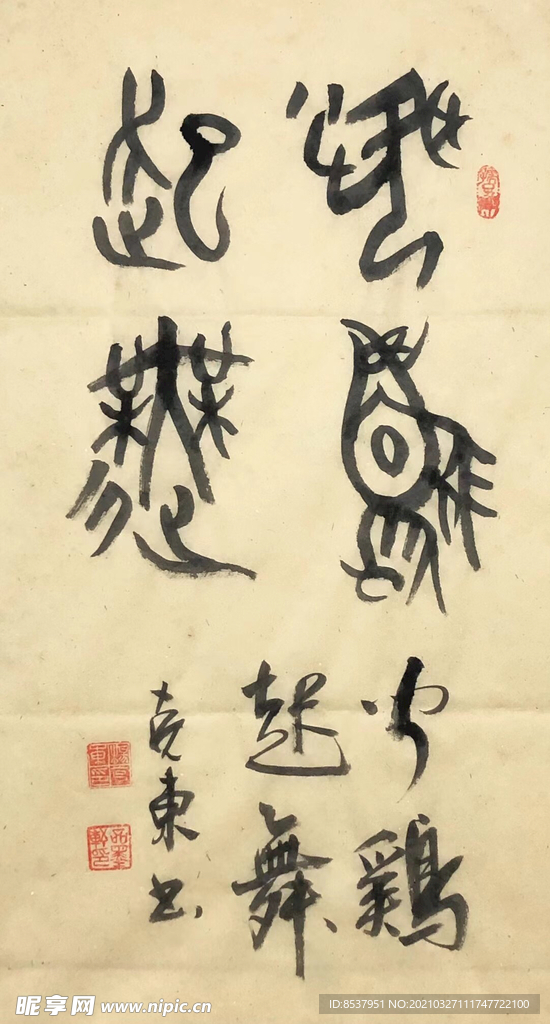 闻鷄
起舞
闻鷄
起舞
克東书
昵享网 www.nipic.cn
ID:8537951 NO:20210327111747722100